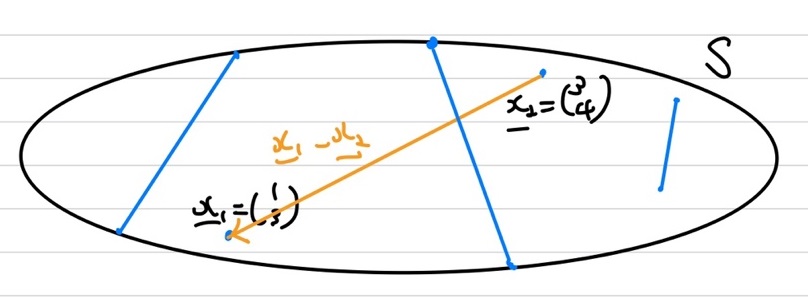 S
x₂ = (3 4)
x₁ - x₂
x₁ = (1 3)